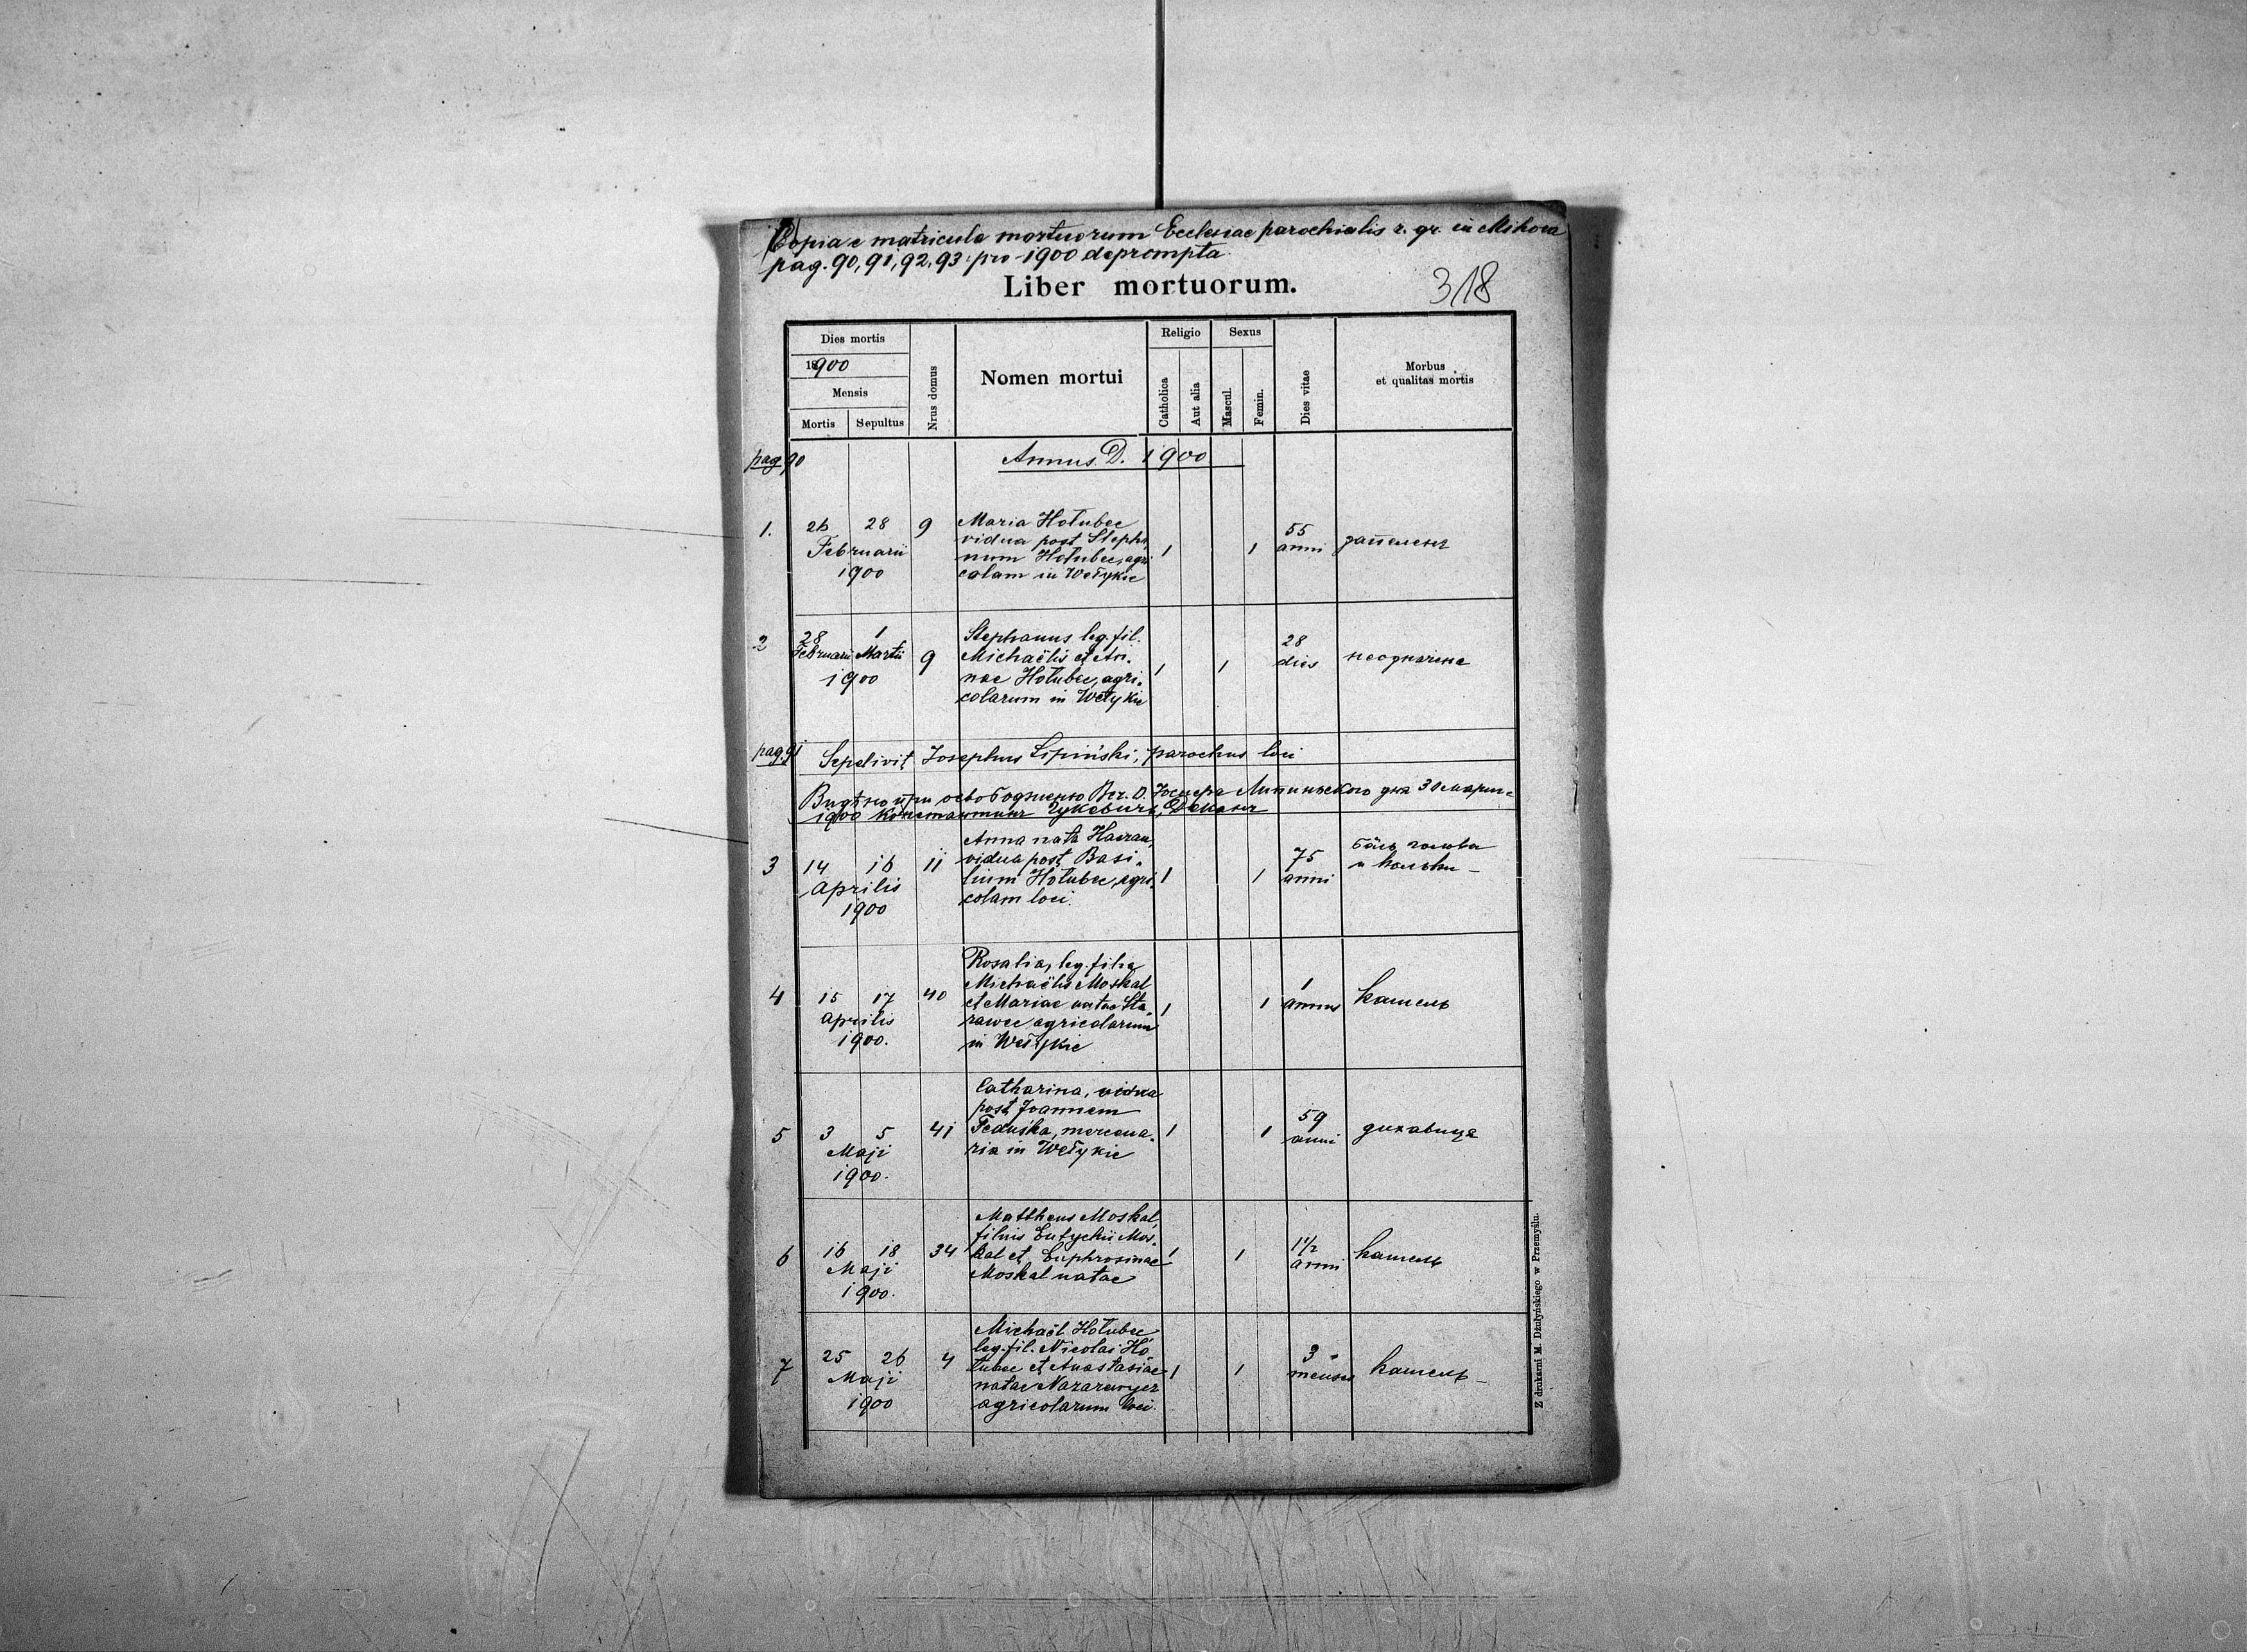 Copia e matricula mortuorum Ecclesiae parochialis r. gr. in Mihowa
pag. 90, 91, 92, 93 pro 1900 deprompta
Liber mortuorum.
318
Dies mortis
18900
Mensis
Mortis Sepultus
Nrus domus
Nomen mortui
Religio
Catholica
Aut alia
Sexus
Mascul.
Femin.
Dies vitae
Morbus
et qualitas mortis
pag 90
Annus D. 1900
1. 26 28 9
Februarii
1900
Maria Hołubec
vidua post Stepha
num Hołubec, agri
colam in Wełykie
1 1
55
anni
2 28 1 9
Februarii Martii
1900
Stephanus leg. fil.
Michaëlis et An-
nae Hołubec, agri-
colarum in Wełykie
1 1
28
dies
pag. 91
Sepelivit Josephus Lipiński, parochus loci
Липиньского дня 30 марта
1900 Константинъ Деканъ
3 14 16 11
Aprilis
1900
Anna nata
vidua post Basi-
lium Hołubec, agri-
colam loci.
1 1
75
anni
4 15 17 40
Aprilis
1900.
Rosalia, leg. filia
Michaëlis Moskal
et Mariae natae Sta-
rawec agricolarum
in Wełykie
1 1
1
annus
кашель
5 3 5 41
Maji
1900.
Catharina, vidua
post Joannem
Feduśka, mercena-
ria in Wełykie
1 1
59
anni
дихавиця
6 16 18 34
Maji
1900.
Mattheus Moskal,
filius Eutychii Mos-
kal et Euphrosinae
Moskal natae
1 1
1 1/2
anni
кашель
7 25 26 4
Maji
1900
Michaël Hołubec
leg. fil. Nicolai Ho
łubec et Anastasiae
natae Nazarewycz
agricolarum loci.
1 1
3
menses
кашель
Z drukarni M. Dżułyńskiego w Przemyślu.